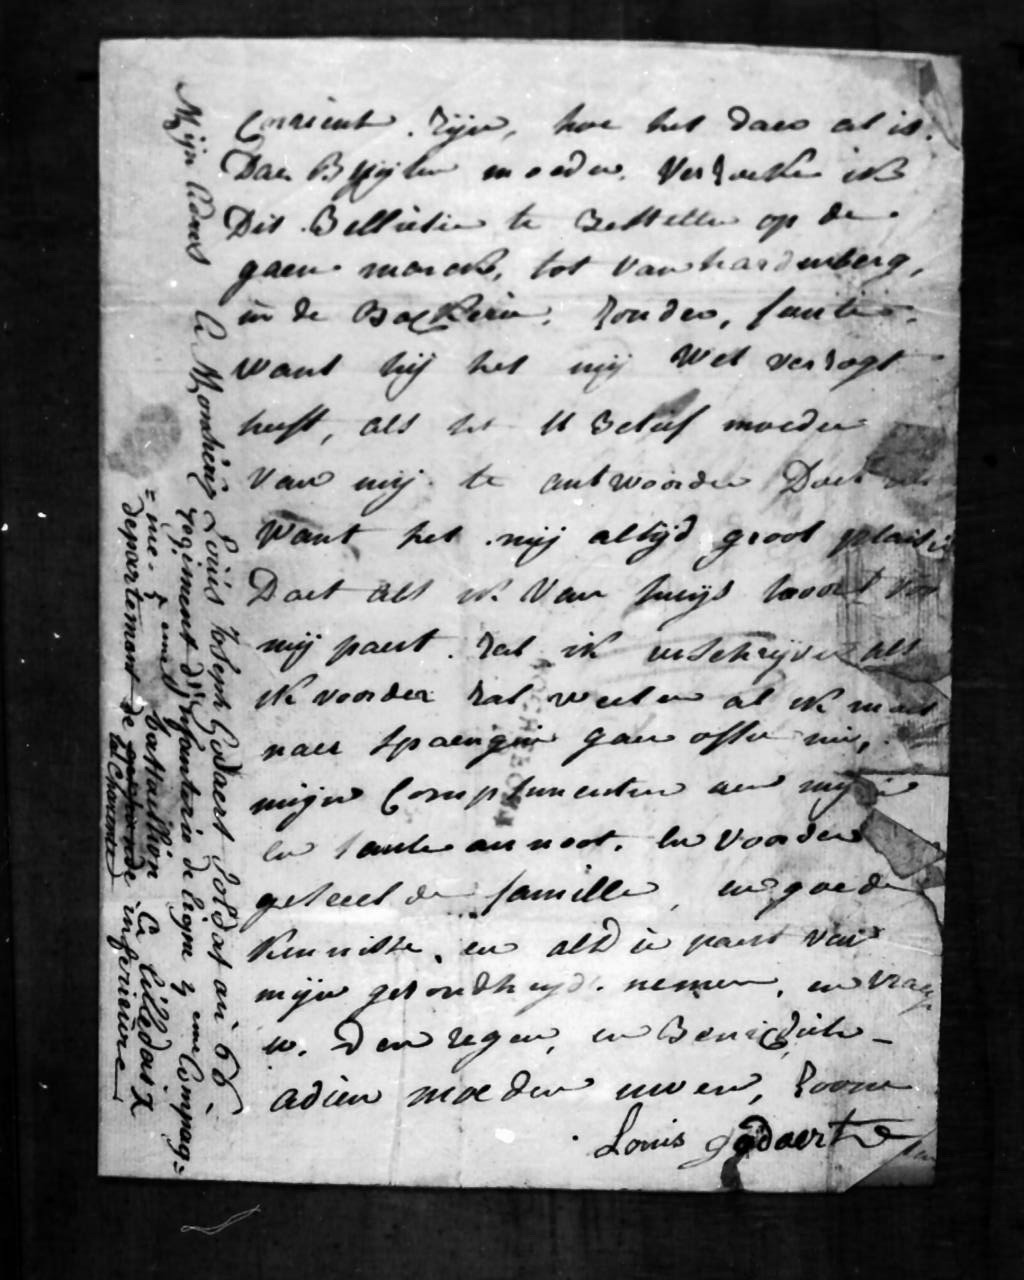 Corrient zijn, hoe het daer al is.
Daer Blyfster moeder. Versoeke ik
Dit Belletien te Bestellen op de
gaere marckt, tot Van hardenberg,
in de Backerie. Zonder, faute.
want hij het mij Wel versogt
heeft, als het U Belief moeder
Van mij te antwoorden Doet
Want het mij altyd groot plaisi
Doet als ik Van huys hoort
mij paert. Zal ik uschryven als
ik voorder Zal weeten al ik moet
naer Spaengin gaen often nie,
mijne Complimenten aen
en tante annoot. en Voorder
geheel de famillie, en goede
Kennisse. en altd ie paert van
mijn gesondheyd. nemen, en vrag
u. Den zegen, en Benedictie
adieu moeder uwen, Zoone
Louis godaert
Mijn Adres A Monsieur Louis Joseph Godaert Soldat au 66
regiment d'infanterie de ligne 3 eme Compag=
=nie 5 eme battaillion A L'illedaix
departement de inferieure
la Charente